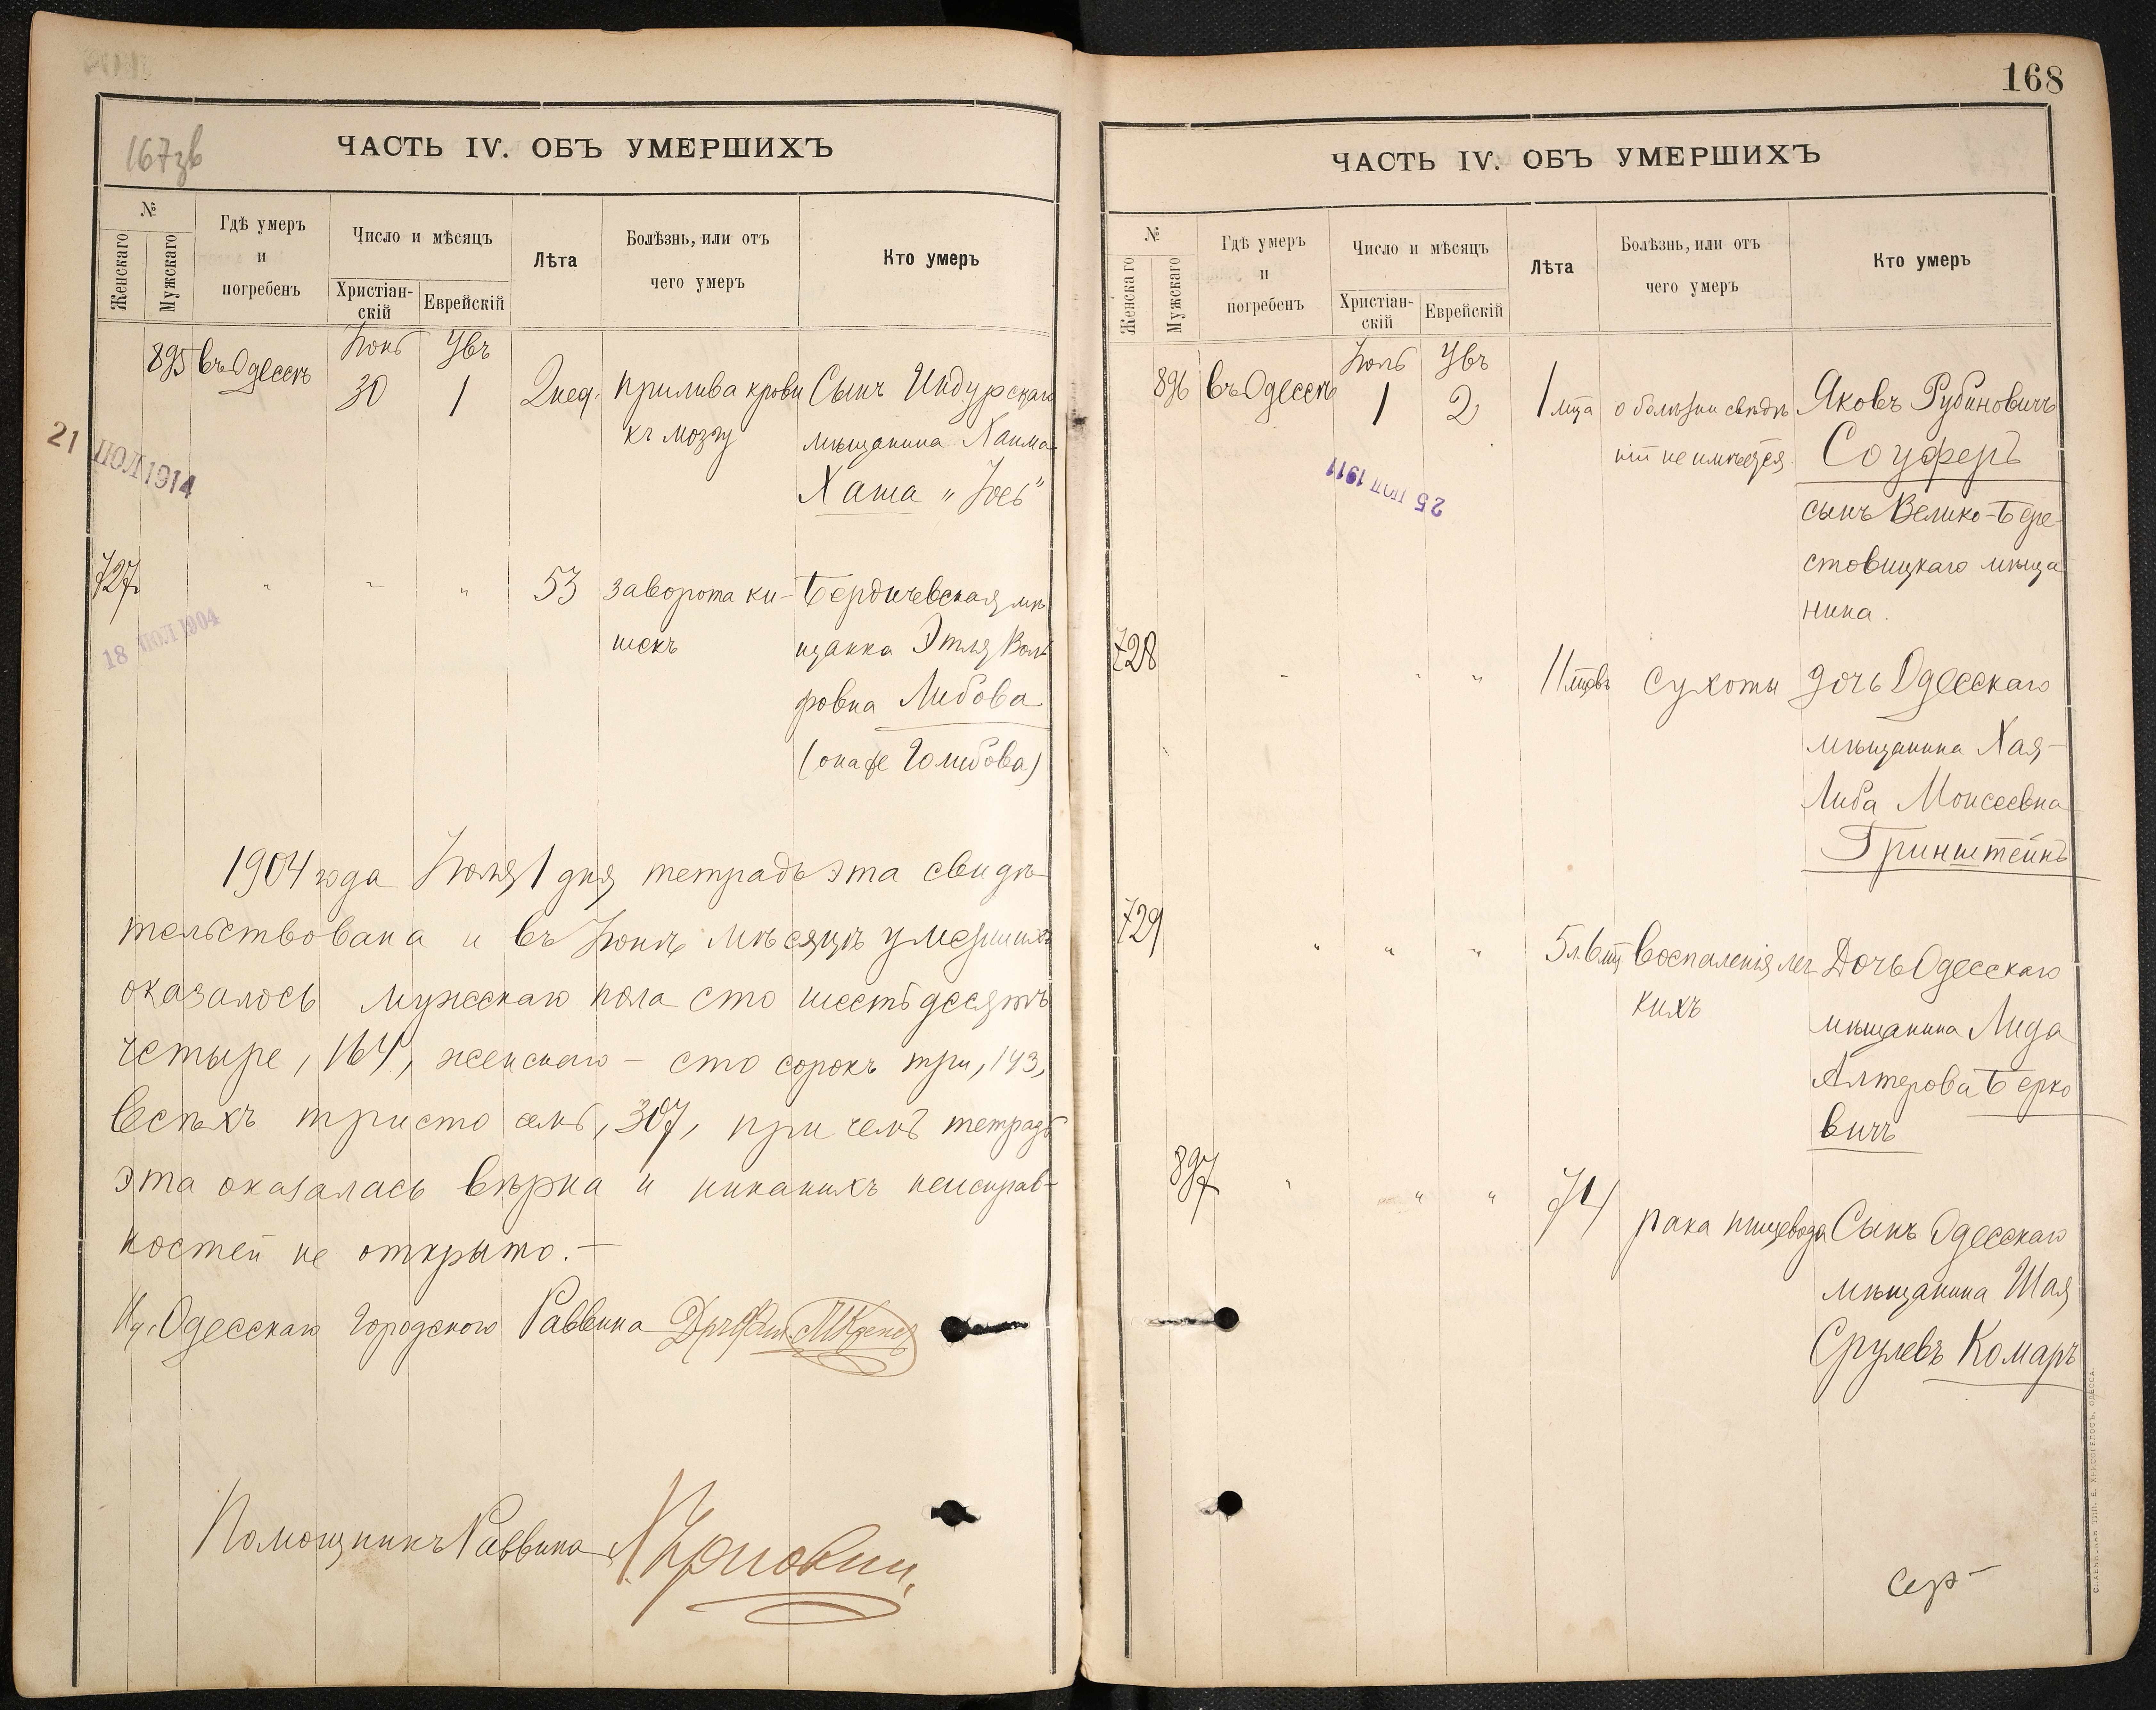 167зв
ЧАСТЬ IV. ОБЪ УМЕРШИХЪ
№
Женскаго
Мужскаго
Гдѣ умеръ
и
погребенъ
Число и мѣсяцъ
Христіан-
скій
Еврейскій
Лѣта
Болѣзнь, или отъ
чего умеръ
Кто умеръ
895 въ Одессѣ Іюнь 30 Увъ 1 2 нед. прилива крови Сынъ Индурскаго
къ мозгу мѣщанина Хаима
Хаша "
21 ІЮЛ 1914
727 " " " 53 заворота ки- Бердичевская мѣ
шекъ щанка Этля Воль
фовна Либова
(она же Голибова)
18 ІЮЛ 1904
1904 года Іюля 1 дня тетрадь эта свидѣ
тельствована и въ Іюнѣ мѣсяцѣ умершихъ
оказалось мужескаго пола сто шестьдесятъ
четыре, 164, женскаго - сто сорокъ три, 143,
всѣхъ триста семь, 307, при чемъ тетрадь
эта оказалась вѣрна и никакихъ неисправ-
ностей не открыто.-
Одесскаго Городского Раввина
Помощникъ Раввина
168
ЧАСТЬ IV. ОБЪ УМЕРШИХЪ
№
Женскаго
Мужскаго
Гдѣ умеръ
и
погребенъ
Число и мѣсяцъ
Христіан-
скій
Еврейскій
Лѣта
Болѣзнь, или отъ
чего умеръ
Кто умеръ
896 въ Одессѣ Іюль 1 Увъ 2 1 мца о болѣзни свѣдѣ Яковъ Рубиновичъ
ній не имѣется. Соуферъ
25 ІЮЛ 1911
сынъ Велико-Бере-
стовицкаго мѣща
нина.
728 " " " 11 мцевъ Сухоты Дочь Одесскаго
мѣщанина Хая-
Либа Моисеевна
Гринштейнъ
729 " " " 5 л. 6 мц Воспаленія лег Дочь Одесскаго
кихъ мѣщанина Лида
Алтерова Берко
вичъ
897 " " " 74 рака пищевода Сынъ Одесскаго
мѣщанина Шая
Срулевъ Комаръ